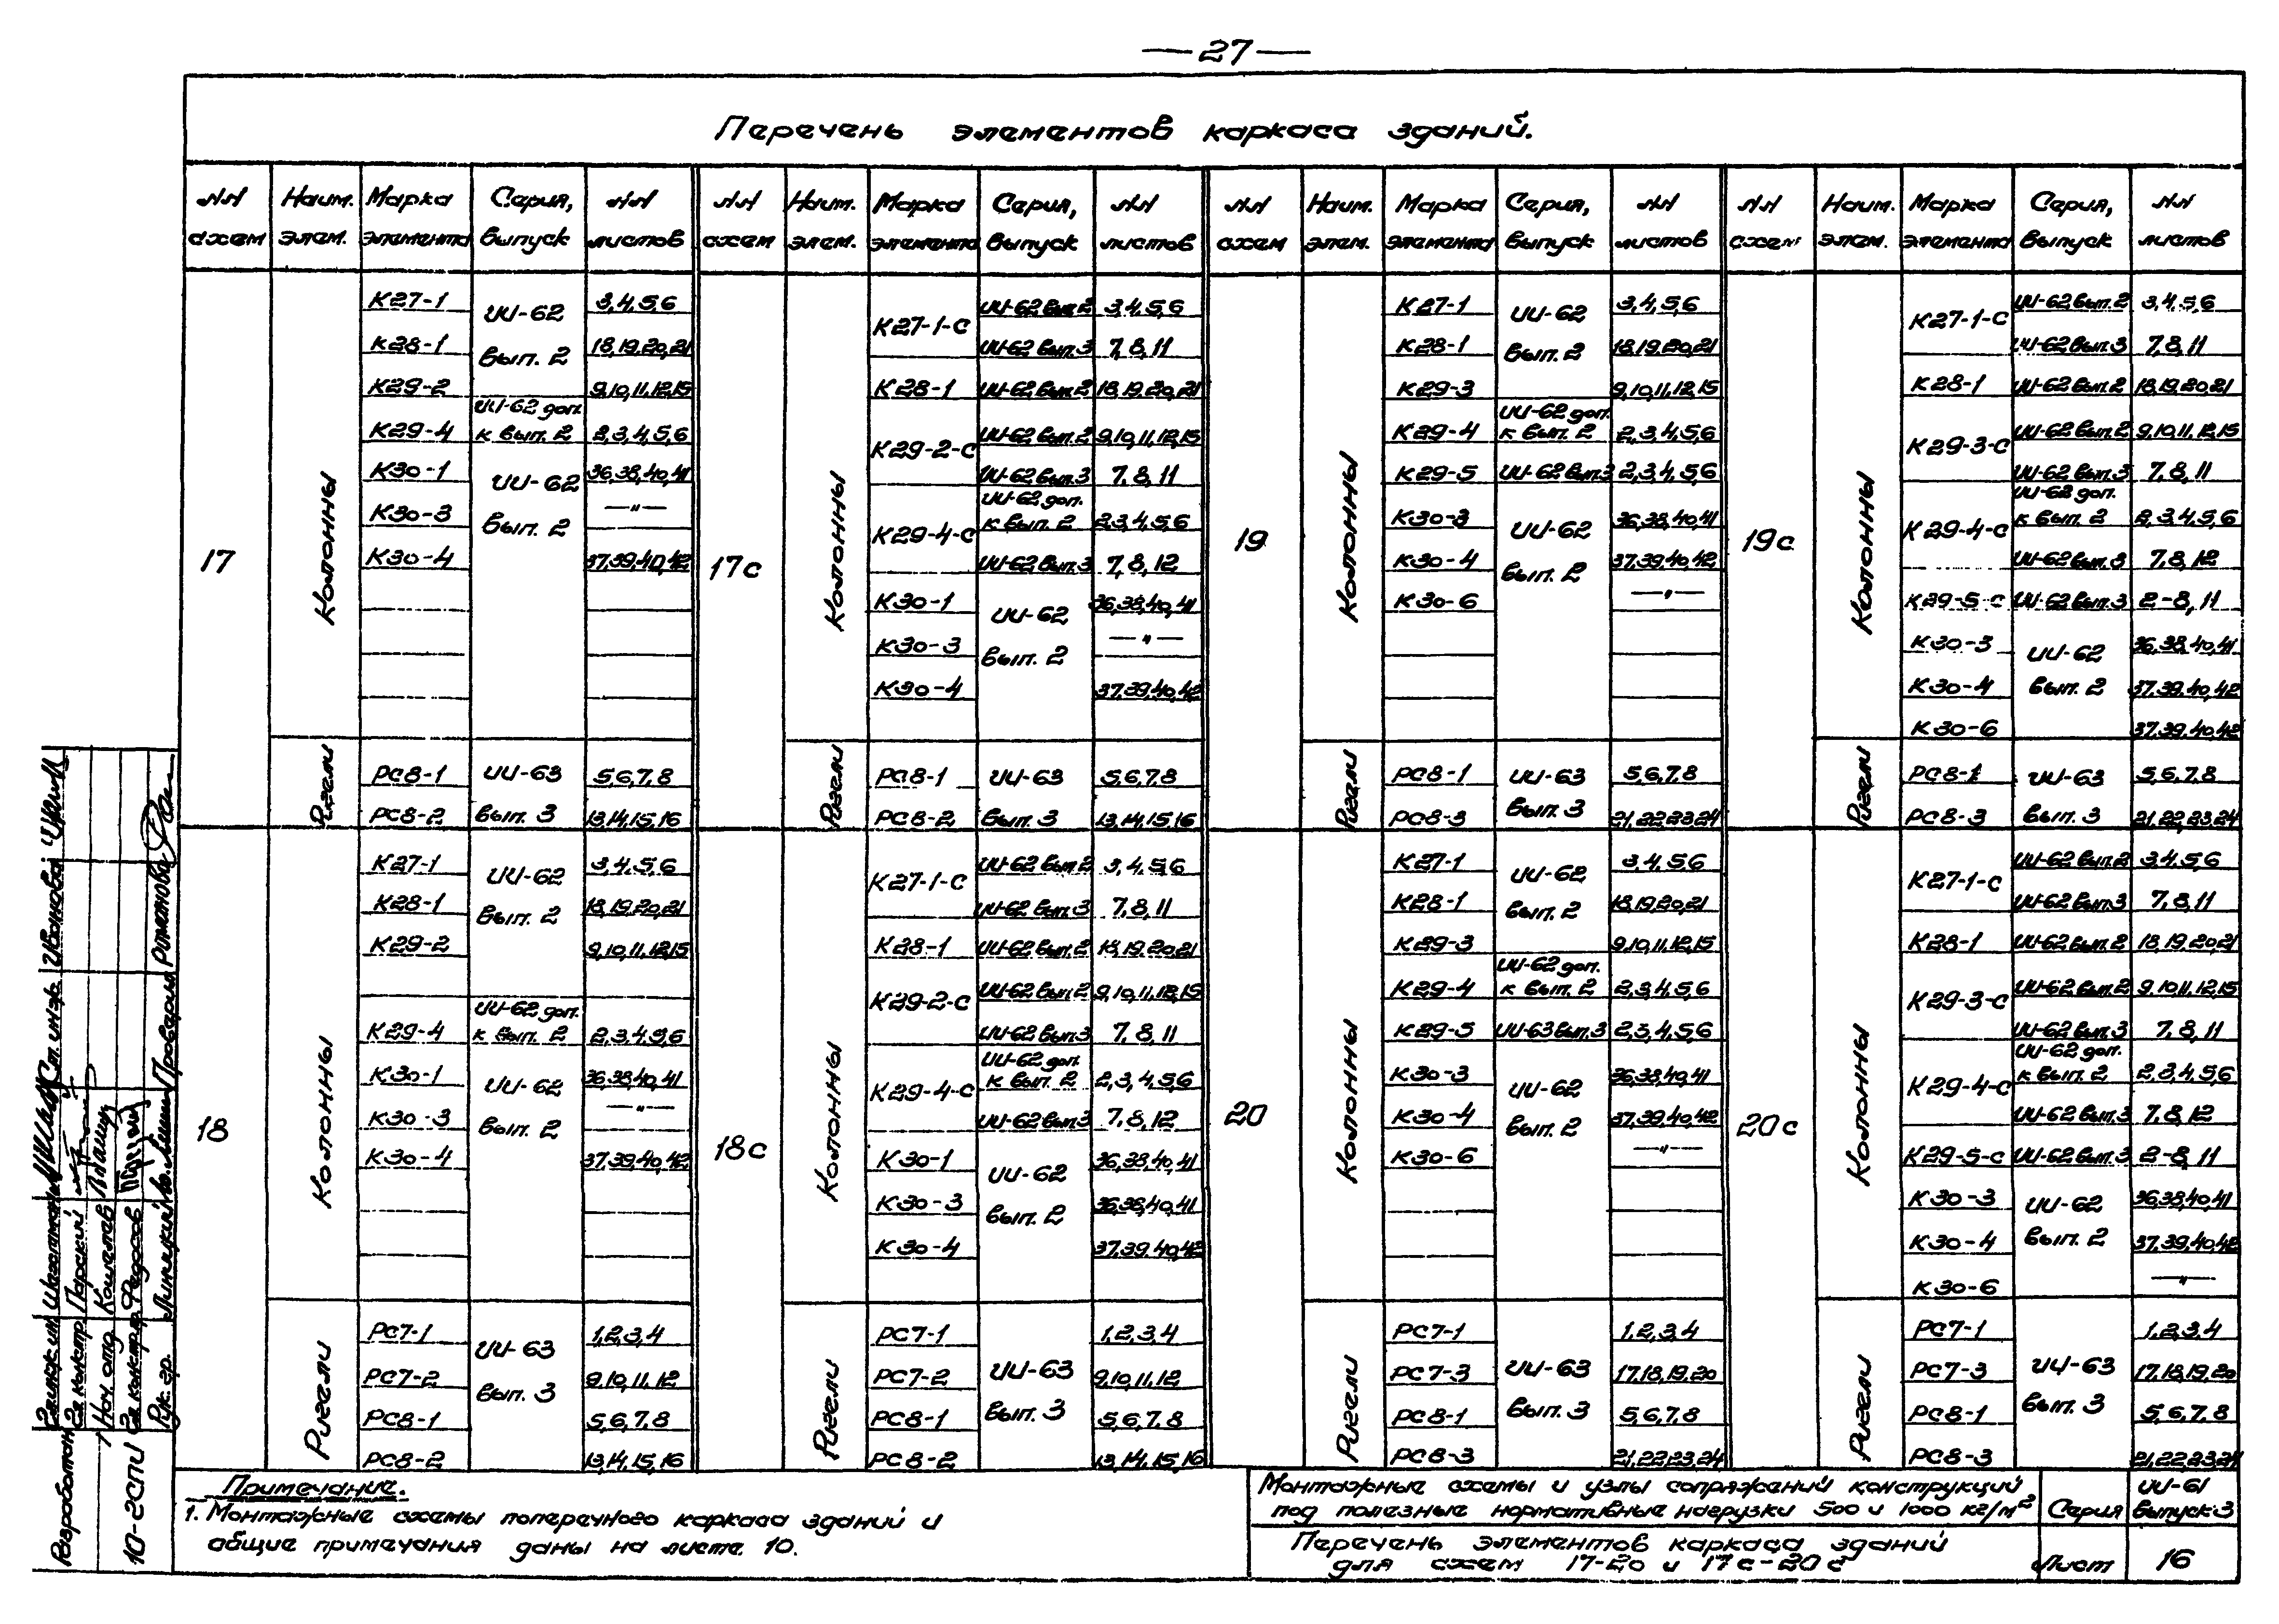 — 27 —
Перечень элементов каркаса зданий.
NN схем Наим. элем. Марка элемента Серия, выпуск NN листов
17
Колонны
К27-1 ИИ-62 вып. 2 3,4,5,6
К28-1 18,19,20,21
К29-2 9,10,11,12,15
К29-4 ИИ-62 доп. к вып. 2 2,3,4,5,6
К30-1 ИИ-62 вып. 2 36,38,40,41
К30-3 —"—
К30-4 37,39,40,42
Ригели
РС8-1 ИИ-63 вып. 3 5,6,7,8
РС8-2 13,14,15,16
18
Колонны
К27-1 ИИ-62 вып. 2 3,4,5,6
К28-1 18,19,20,21
К29-2 9,10,11,12,15
К29-4 ИИ-62 доп. к вып. 2 2,3,4,5,6
К30-1 ИИ-62 вып. 2 36,38,40,41
К30-3 —"—
К30-4 37,39,40,42
Ригели
РС7-1 ИИ-63 вып. 3 1,2,3,4
РС7-2 9,10,11,12
РС8-1 5,6,7,8
РС8-2 13,14,15,16
NN схем Наим. элем. Марка элемента Серия, выпуск NN листов
17с
Колонны
К27-1-С ИИ-62 вып 2 3,4,5,6
ИИ-62 вып. 3 7,8,11
К28-1 ИИ-62 вып. 2 18,19,20,21
К29-2-С ИИ-62 вып. 2 9,10,11,12,15
ИИ-62 вып. 3 7,8,11
К29-4-С ИИ-62 доп. к вып. 2 2,3,4,5,6
ИИ-62 вып. 3 7,8,12
К30-1 ИИ-62 вып. 2 36,38,40,41
К30-3 —"—
К30-4 37,39,40,42
Ригели
РС8-1 ИИ-63 вып. 3 5,6,7,8
РС8-2 13,14,15,16
18с
Колонны
К27-1-С ИИ-62 вып. 2 3,4,5,6
ИИ-62 вып. 3 7,8,11
К28-1 ИИ-62 вып. 2 18,19,20,21
К29-2-С ИИ-62 вып. 2 9,10,11,12,15
ИИ-62 вып. 3 7,8,11
К29-4-С ИИ-62 доп. к вып. 2 2,3,4,5,6
ИИ-62 вып. 3 7,8,12
К30-1 ИИ-62 вып. 2 36,38,40,41
К30-3 36,38,40,41
К30-4 37,39,40,42
Ригели
РС7-1 ИИ-63 вып. 3 1,2,3,4
РС7-2 9,10,11,12
РС8-1 5,6,7,8
РС8-2 13,14,15,16
NN схем Наим. элем. Марка элемента Серия, выпуск NN листов
19
Колонны
К27-1 ИИ-62 вып. 2 3,4,5,6
К28-1 18,19,20,21
К29-3 9,10,11,12,15
К29-4 ИИ-62 доп. к вып. 2 2,3,4,5,6
К29-5 ИИ-62 вып. 3 2,3,4,5,6
К30-3 ИИ-62 вып. 2 36,38,40,41
К30-4 37,39,40,42
К30-6 —"—
Ригели
РС8-1 ИИ-63 вып. 3 5,6,7,8
РС8-3 21,22,23,24
20
Колонны
К27-1 ИИ-62 вып. 2 3,4,5,6
К28-1 18,19,20,21
К29-3 9,10,11,12,15
К29-4 ИИ-62 доп. к вып. 2 2,3,4,5,6
К29-5 ИИ-63 вып. 3 2,3,4,5,6
К30-3 ИИ-62 вып. 2 36,38,40,41
К30-4 37,39,40,42
К30-6 —"—
Ригели
РС7-1 ИИ-63 вып. 3 1,2,3,4
РС7-3 17,18,19,20
РС8-1 5,6,7,8
РС8-3 21,22,23,24
NN схем Наим. элем. Марка элемента Серия, выпуск NN листов
19с
Колонны
К27-1-С ИИ-62 вып. 2 3,4,5,6
ИИ-62 вып. 3 7,8,11
К28-1 ИИ-62 вып. 2 18,19,20,21
К29-3-С ИИ-62 вып. 2 9,10,11,12,15
ИИ-62 вып. 3 7,8,11
К29-4-С ИИ-62 доп. к вып. 2 2,3,4,5,6
ИИ-62 вып. 3 7,8,12
К29-5-С ИИ-62 вып. 3 2-8,11
К30-3 ИИ-62 вып. 2 36,38,40,41
К30-4 37,39,40,42
К30-6 37,39,40,42
Ригели
РС8-1 ИИ-63 вып. 3 5,6,7,8
РС8-3 21,22,23,24
20с
Колонны
К27-1-С ИИ-62 вып. 2 3,4,5,6
ИИ-62 вып. 3 7,8,11
К28-1 ИИ-62 вып. 2 18,19,20,21
К29-3-С ИИ-62 вып. 2 9,10,11,12,15
ИИ-62 вып. 3 7,8,11
К29-4-С ИИ-62 доп. к вып. 2 2,3,4,5,6
ИИ-62 вып. 3 7,8,12
К29-5-С ИИ-62 вып. 3 2-8,11
К30-3 ИИ-62 вып. 2 36,38,40,41
К30-4 37,39,40,42
К30-6 —"—
Ригели
РС7-1 ИИ-63 вып. 3 1,2,3,4
РС7-3 17,18,19,20
РС8-1 5,6,7,8
РС8-3 21,22,23,24
Примечание.
1. Монтажные схемы поперечного каркаса зданий и
общие примечания даны на листе 10.
Монтажные схемы и узлы сопряжений конструкций
под полезные нормативные нагрузки 500 и 1000 кг/м²
Серия ИИ-61 Выпуск 3
Перечень элементов каркаса зданий
для схем 17-20 и 17с-20с
Лист 16
Разработан
10-ГСПИ
Гл. инж. ин. Шагалман
Гл. констр. Парский
Нач. отд. Кошелев
Гл. констр. Федосов
Рук. гр. Линицкий
Ст. инж. Иванкова
Проверил Романова